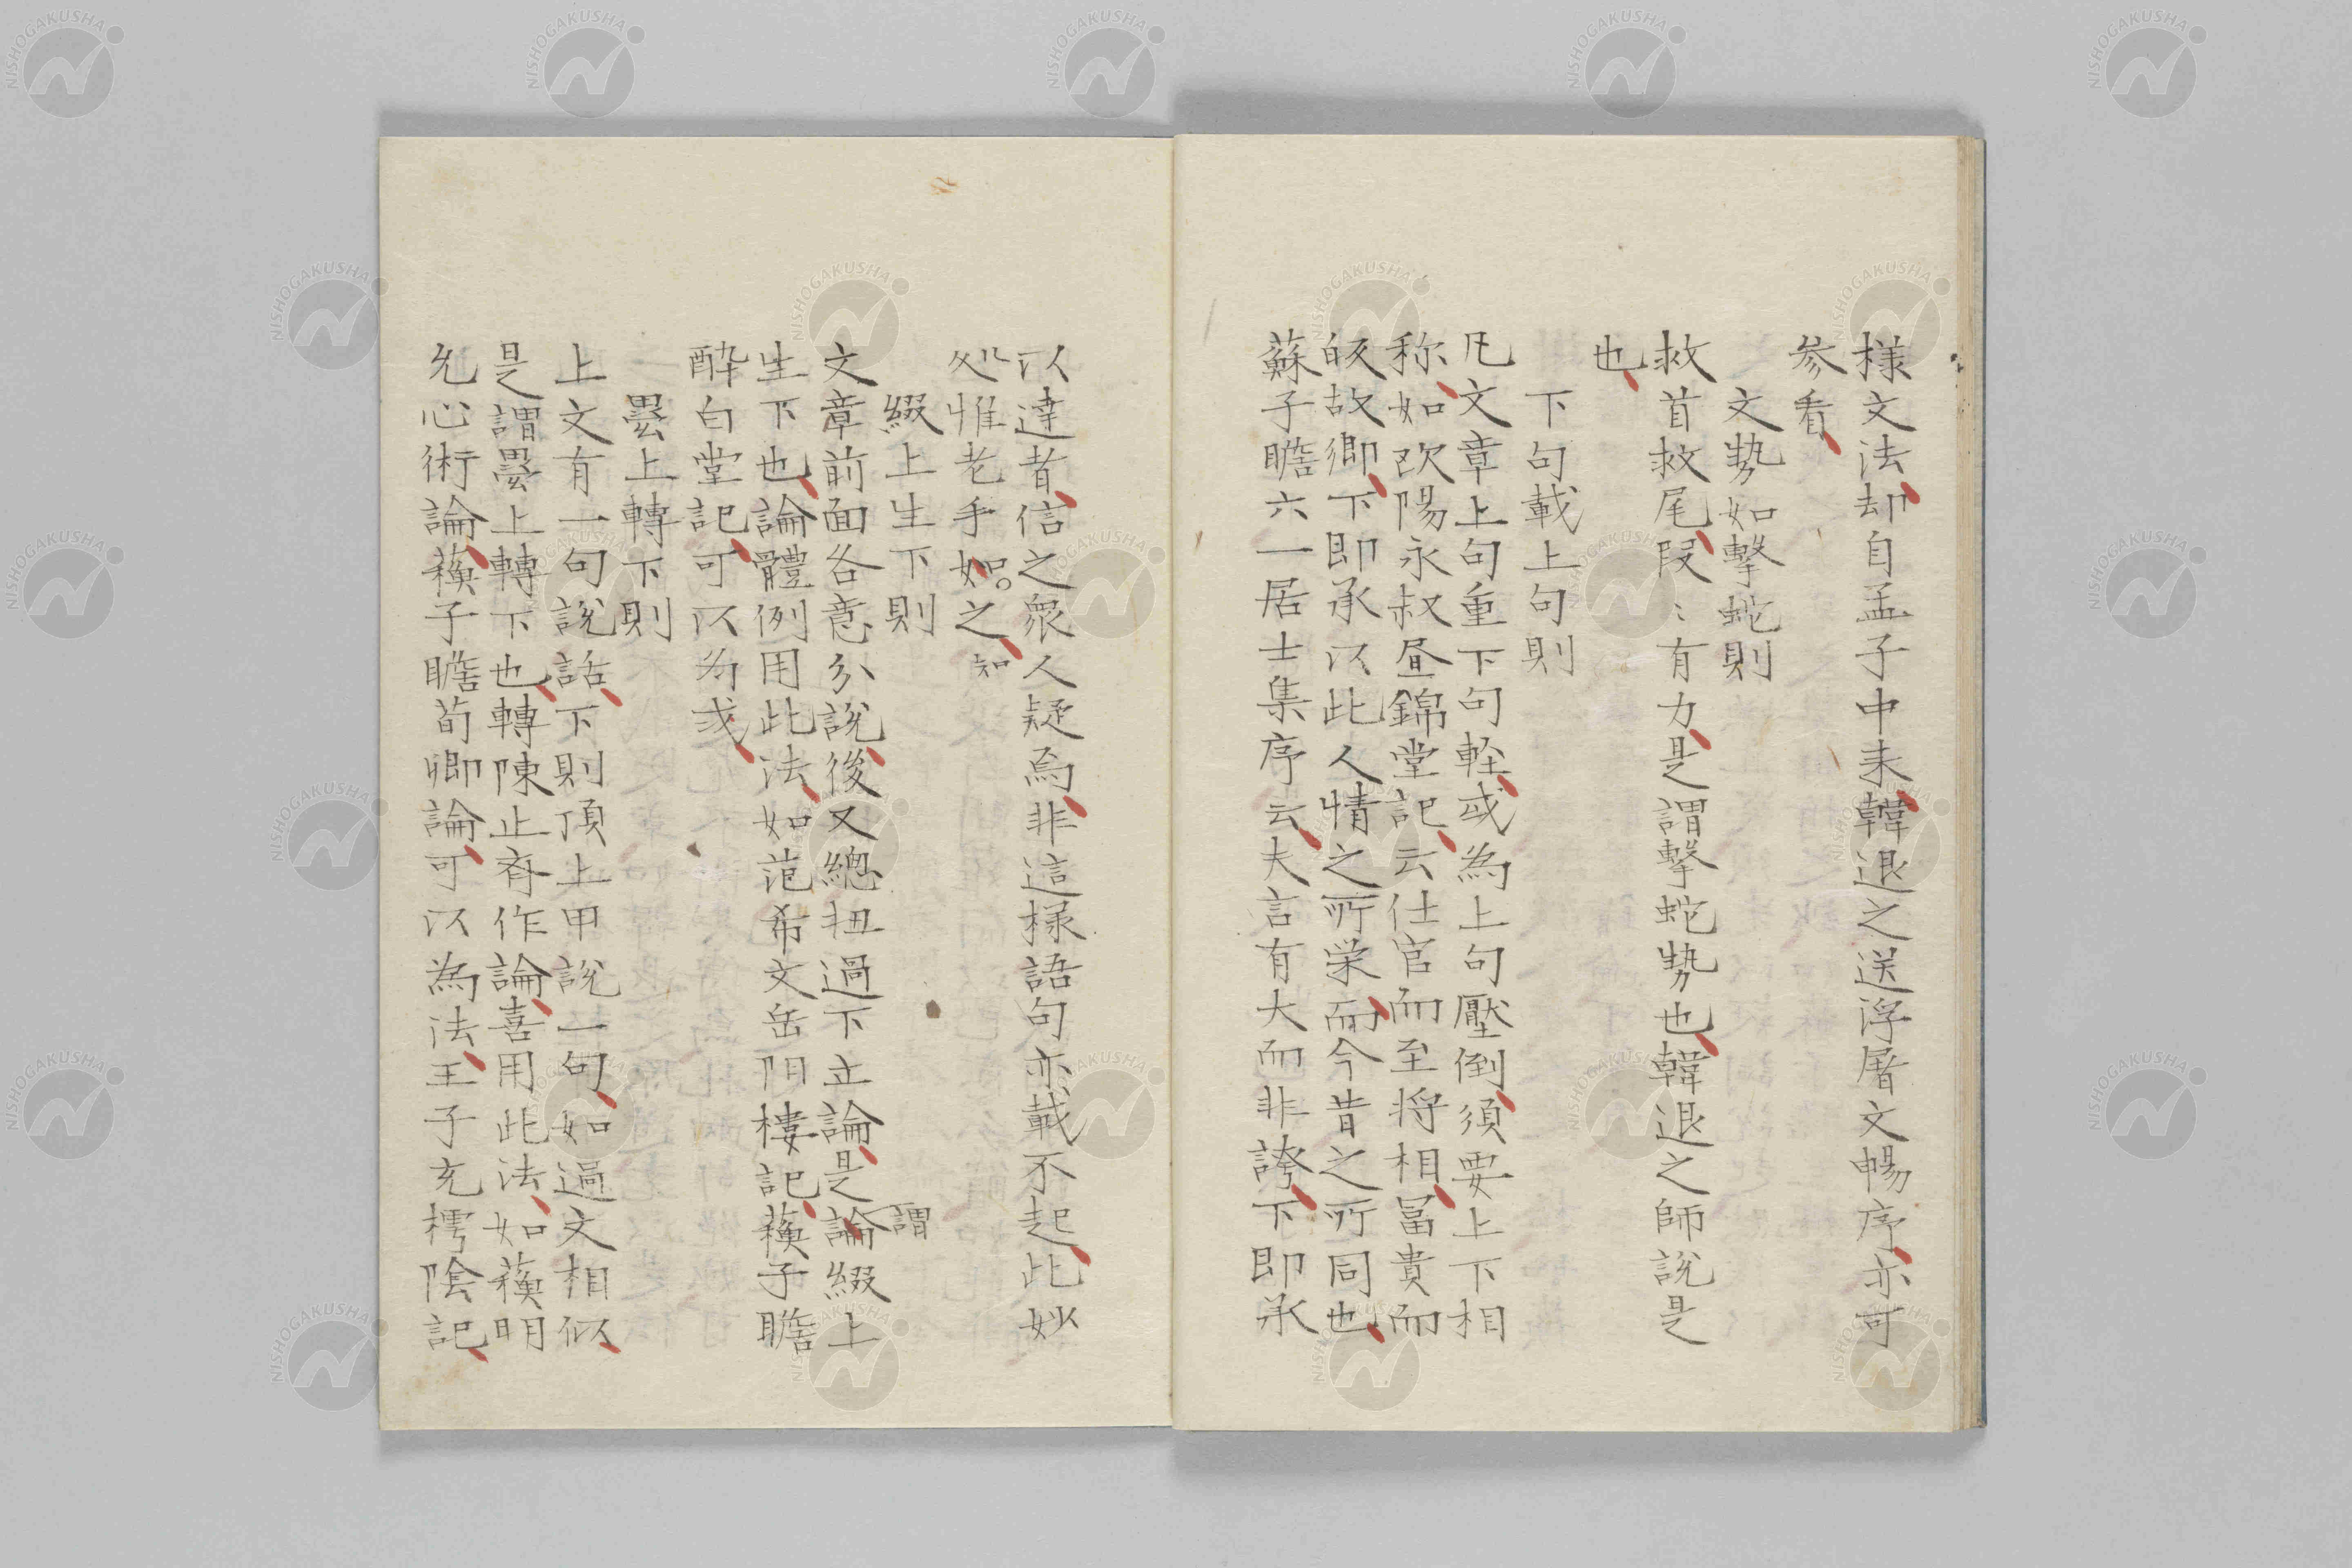 様文法却自孟子中来韓退之送浮屠文暢序亦可
参看
文勢如擊蛇則
救首救尾段〻有力是謂擊蛇勢也韓退之師說是
也
下句載上句則
凡文章上句重下句軽或為上句壓倒須要上下相
称如欧陽永叔昼錦堂記云仕宦而至将相冨貴而
故郷下即承以此人情之所栄而今昔之所同也
蘇子瞻六一居士集序云夫言有大而非誇下即承
以達者信之衆人疑焉非這様語句亦載不起此妙
処惟老手如之
知
綴上生下則
文章前面各意分說後又總扭過下立論是論綴上
謂
生下也論體例用此法如范希文岳阳樓記蘓子瞻
酔白堂記可以為式
疂上轉下則
上文有一句說話下則頂上甲說一句如過文相似
是謂疂上轉下也轉陳止斉作論喜用此法如蘓明
允心術論蘓子瞻荀卿論可以為法王子充樗陰記
NISHOGAKUSHA